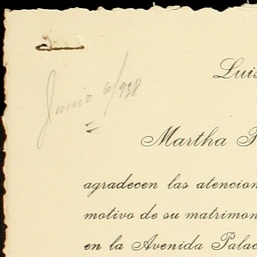 Junio 6/938
Luis
Martha
agradecen las atencion
motivo de su matrimon
en la Avenida Palac